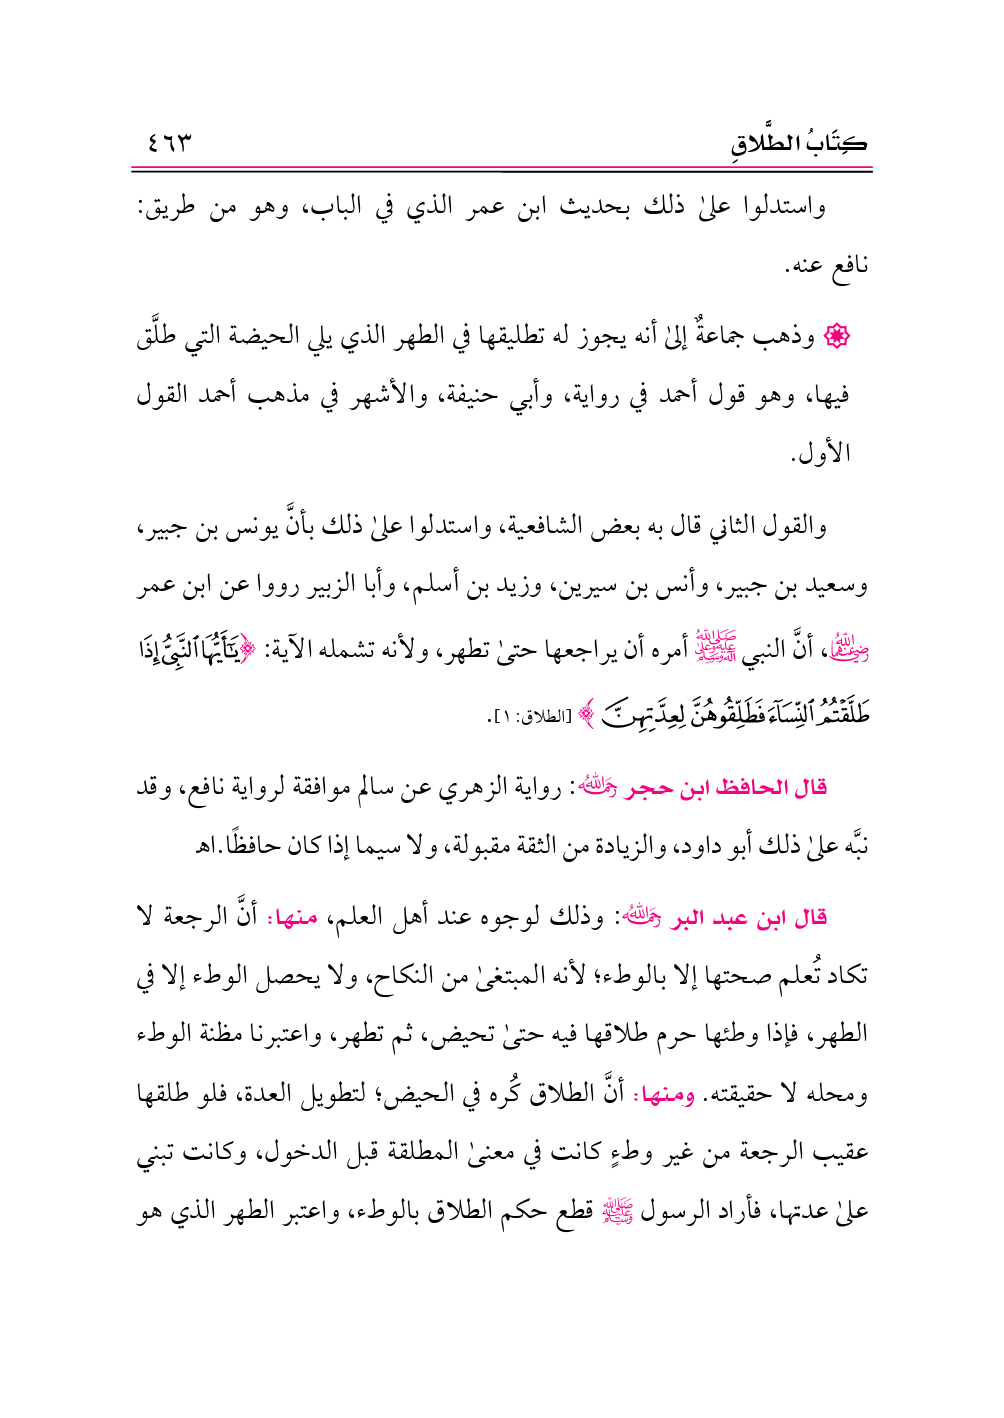 كِتَابُ الطَّلَاقِ ٤٦٣
واستدلوا علىٰ ذلك بحديث ابن عمر الذي في الباب، وهو من طريق:
نافع عنه.
وذهب جماعةٌ إلىٰ أنه يجوز له تطليقها في الطهر الذي يلي الحيضة التي طلَّق
فيها، وهو قول أحمد في رواية، وأبي حنيفة، والأشهر في مذهب أحمد القول
الأول.
والقول الثاني قال به بعض الشافعية، واستدلوا علىٰ ذلك بأنَّ يونس بن جبير،
وسعيد بن جبير، وأنس بن سيرين، وزيد بن أسلم، وأبا الزبير رووا عن ابن عمر
رضي الله عنهما، أنَّ النبي ﷺ أمره أن يراجعها حتىٰ تطهر، ولأنه تشمله الآية: ﴿يَٰٓأَيُّهَا ٱلنَّبِيُّ إِذَا
طَلَّقْتُمُ ٱلنِّسَآءَ فَطَلِّقُوهُنَّ لِعِدَّتِهِنَّ﴾ [الطلاق: ١].
قال الحافظ ابن حجر رحمه الله: رواية الزهري عن سالم موافقة لرواية نافع، وقد
نبَّه علىٰ ذلك أبو داود، والزيادة من الثقة مقبولة، ولا سيما إذا كان حافظًا.اهـ
قال ابن عبد البر رحمه الله: وذلك لوجوه عند أهل العلم، منها: أنَّ الرجعة لا
تكاد تُعلم صحتها إلا بالوطء؛ لأنه المبتغىٰ من النكاح، ولا يحصل الوطء إلا في
الطهر، فإذا وطئها حرم طلاقها فيه حتىٰ تحيض، ثم تطهر، واعتبرنا مظنة الوطء
ومحله لا حقيقته. ومنها: أنَّ الطلاق كُره في الحيض؛ لتطويل العدة، فلو طلقها
عقيب الرجعة من غير وطءٍ كانت في معنىٰ المطلقة قبل الدخول، وكانت تبني
علىٰ عدتها، فأراد الرسول ﷺ قطع حكم الطلاق بالوطء، واعتبر الطهر الذي هو